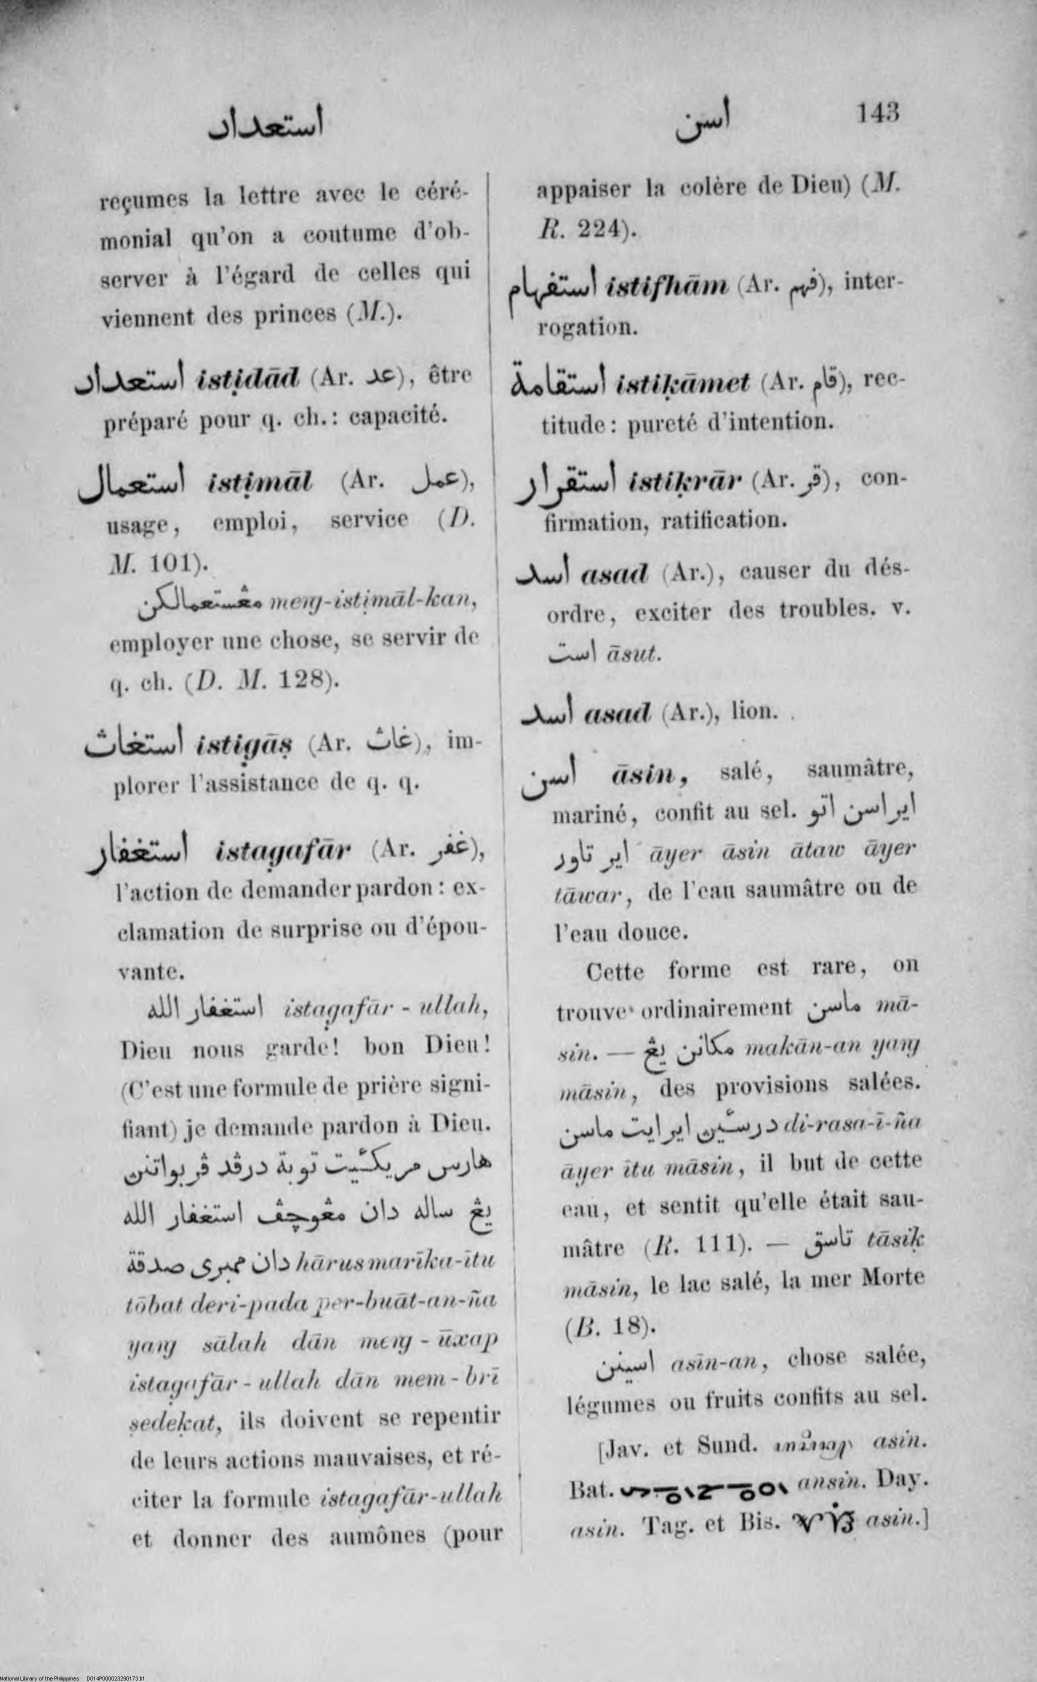 استعداد
اسن
143
reçumes la lettre avec le céré-
monial qu'on a coutume d'ob-
server à l'égard de celles qui
viennent des princes (M.).
استعداد istịdād (Ar. عد), être
préparé pour q. ch.: capacité.
استعمال istịmāl (Ar. عمل),
usage, emploi, service (D.
M. 101).
مڠستعمالكن meŋ-istịmāl-kan,
employer une chose, se servir de
q. ch. (D. M. 128).
استغاث istig̣āṣ (Ar. غاث), im-
plorer l'assistance de q. q.
استغفار istag̣afār (Ar. غفر),
l'action de demander pardon: ex-
clamation de surprise ou d'épou-
vante.
استغفار الله istag̣afār-ullah,
Dieu nous garde! bon Dieu!
(C'est une formule de prière signi-
fiant) je demande pardon à Dieu.
هارس مريكئيت توبة درڤد ڤربواتنڽ
يڠ ساله دان مڠوچڤ استغفار الله
دان ممبرى صدقة hārus marīka-ītu
tōbat deri-pada per-buāt-an-ña
yaŋ sālah dān meŋ-ūxap
istag̣afār-ullah dān mem-brī
ṣedeḳat, ils doivent se repentir
de leurs actions mauvaises, et ré-
citer la formule istag̣afār-ullah
et donner des aumônes (pour
appaiser la colère de Dieu) (M.
R. 224).
استفهام istifhām (Ar. فهم), inter-
rogation.
استقامة istiḳāmet (Ar. قام), rec-
titude: pureté d'intention.
استقرار istiḳrār (Ar. قر), con-
firmation, ratification.
اسد asad (Ar.), causer du dés-
ordre, exciter des troubles. v.
است āsut.
اسد asad (Ar.), lion.
اسن āsin, salé, saumâtre,
mariné, confit au sel. اير اسن اتو
اير تاور āyer āsin ātaw āyer
tāwar, de l'eau saumâtre ou de
l'eau douce.
Cette forme est rare, on
trouve ordinairement ماسن mā-
sin. — مكانن يڠ makān-an yaŋ
māsin, des provisions salées.
درسئيڽ اير ايت ماسن di-rasa-ī-ña
āyer ītu māsin, il but de cette
eau, et sentit qu'elle était sau-
mâtre (R. 111). — تاسق tāsiḳ
māsin, le lac salé, la mer Morte
(B. 18).
اسينن asīn-an, chose salée,
légumes ou fruits confits au sel.
[Jav. et Sund. asin.
Bat. ansin. Day.
asin. Tag. et Bis. asin.]
National Library of the Philippines